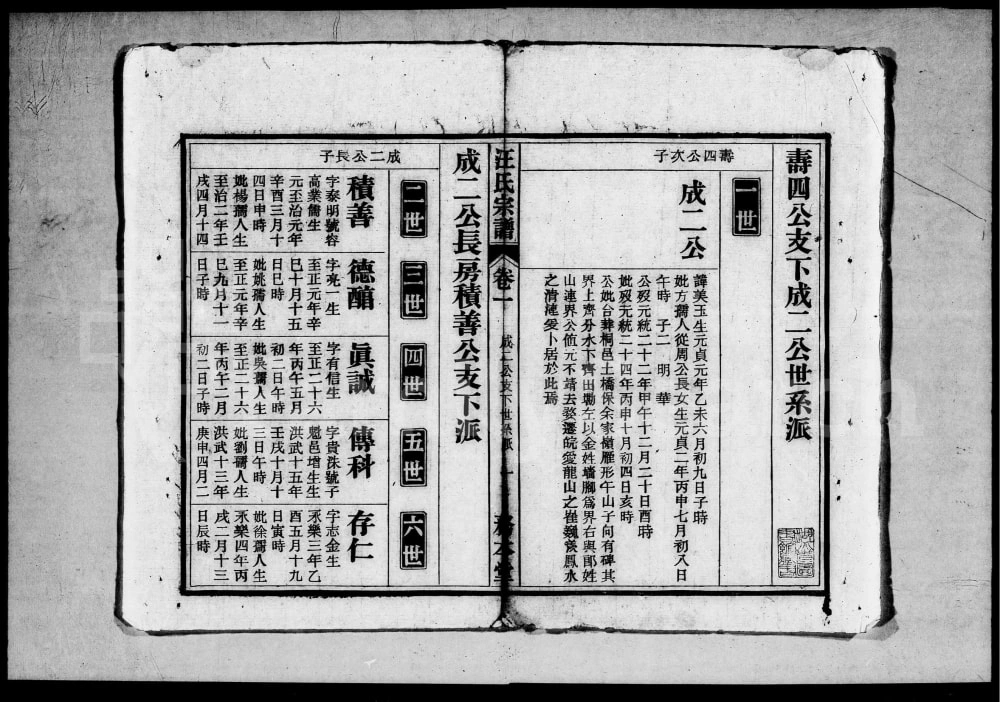 壽四公支下成二公世系派
一世
壽四公次子
成二公
諱美玉生元貞元年乙未六月初九日子時
妣方孺人從周公長女生元貞二年丙申七月初八日
午時 子二 明 華
公歿元統二十二年甲午十二月二十日酉時
妣歿元統二十四年丙申十月初四日亥時
公妣合葬桐邑土橋保余家嶺雁形午山子向有碑其
界上齊分水下齊田塝左以金姓墻腳為界右與鄭姓
山連界公值元不靖去婺遷皖愛龍山之崔巍羨鳳水
之清漣爰卜居於此焉
汪氏宗譜
卷一
成二公支下世系派
務本堂
成二公長房積善公支下派
二世
三世
四世
五世
六世
成二公長子
積善
字泰明號容
高業儒生
元至治元年
辛酉三月十
四日申時
妣楊孺人生
至治二年壬
戌四月十四
日子時
德館
字亮一生
至正元年辛
巳十月十五
日巳時
妣姚孺人生
至正元年辛
巳九月十一
日子時
眞誠
字有信生
至正二十六
年丙午五月
初二日午時
妣吳孺人生
至正二十六
年丙午二月
初二日子時
傳科
字貴洙號子
魁邑增生生
洪武十五年
壬戌十月十
三日午時
妣劉孺人生
洪武十三年
庚申四月二
存仁
字志金生
永樂三年乙
酉五月十九
日寅時
妣徐孺人生
永樂四年丙
戌二月十三
日辰時